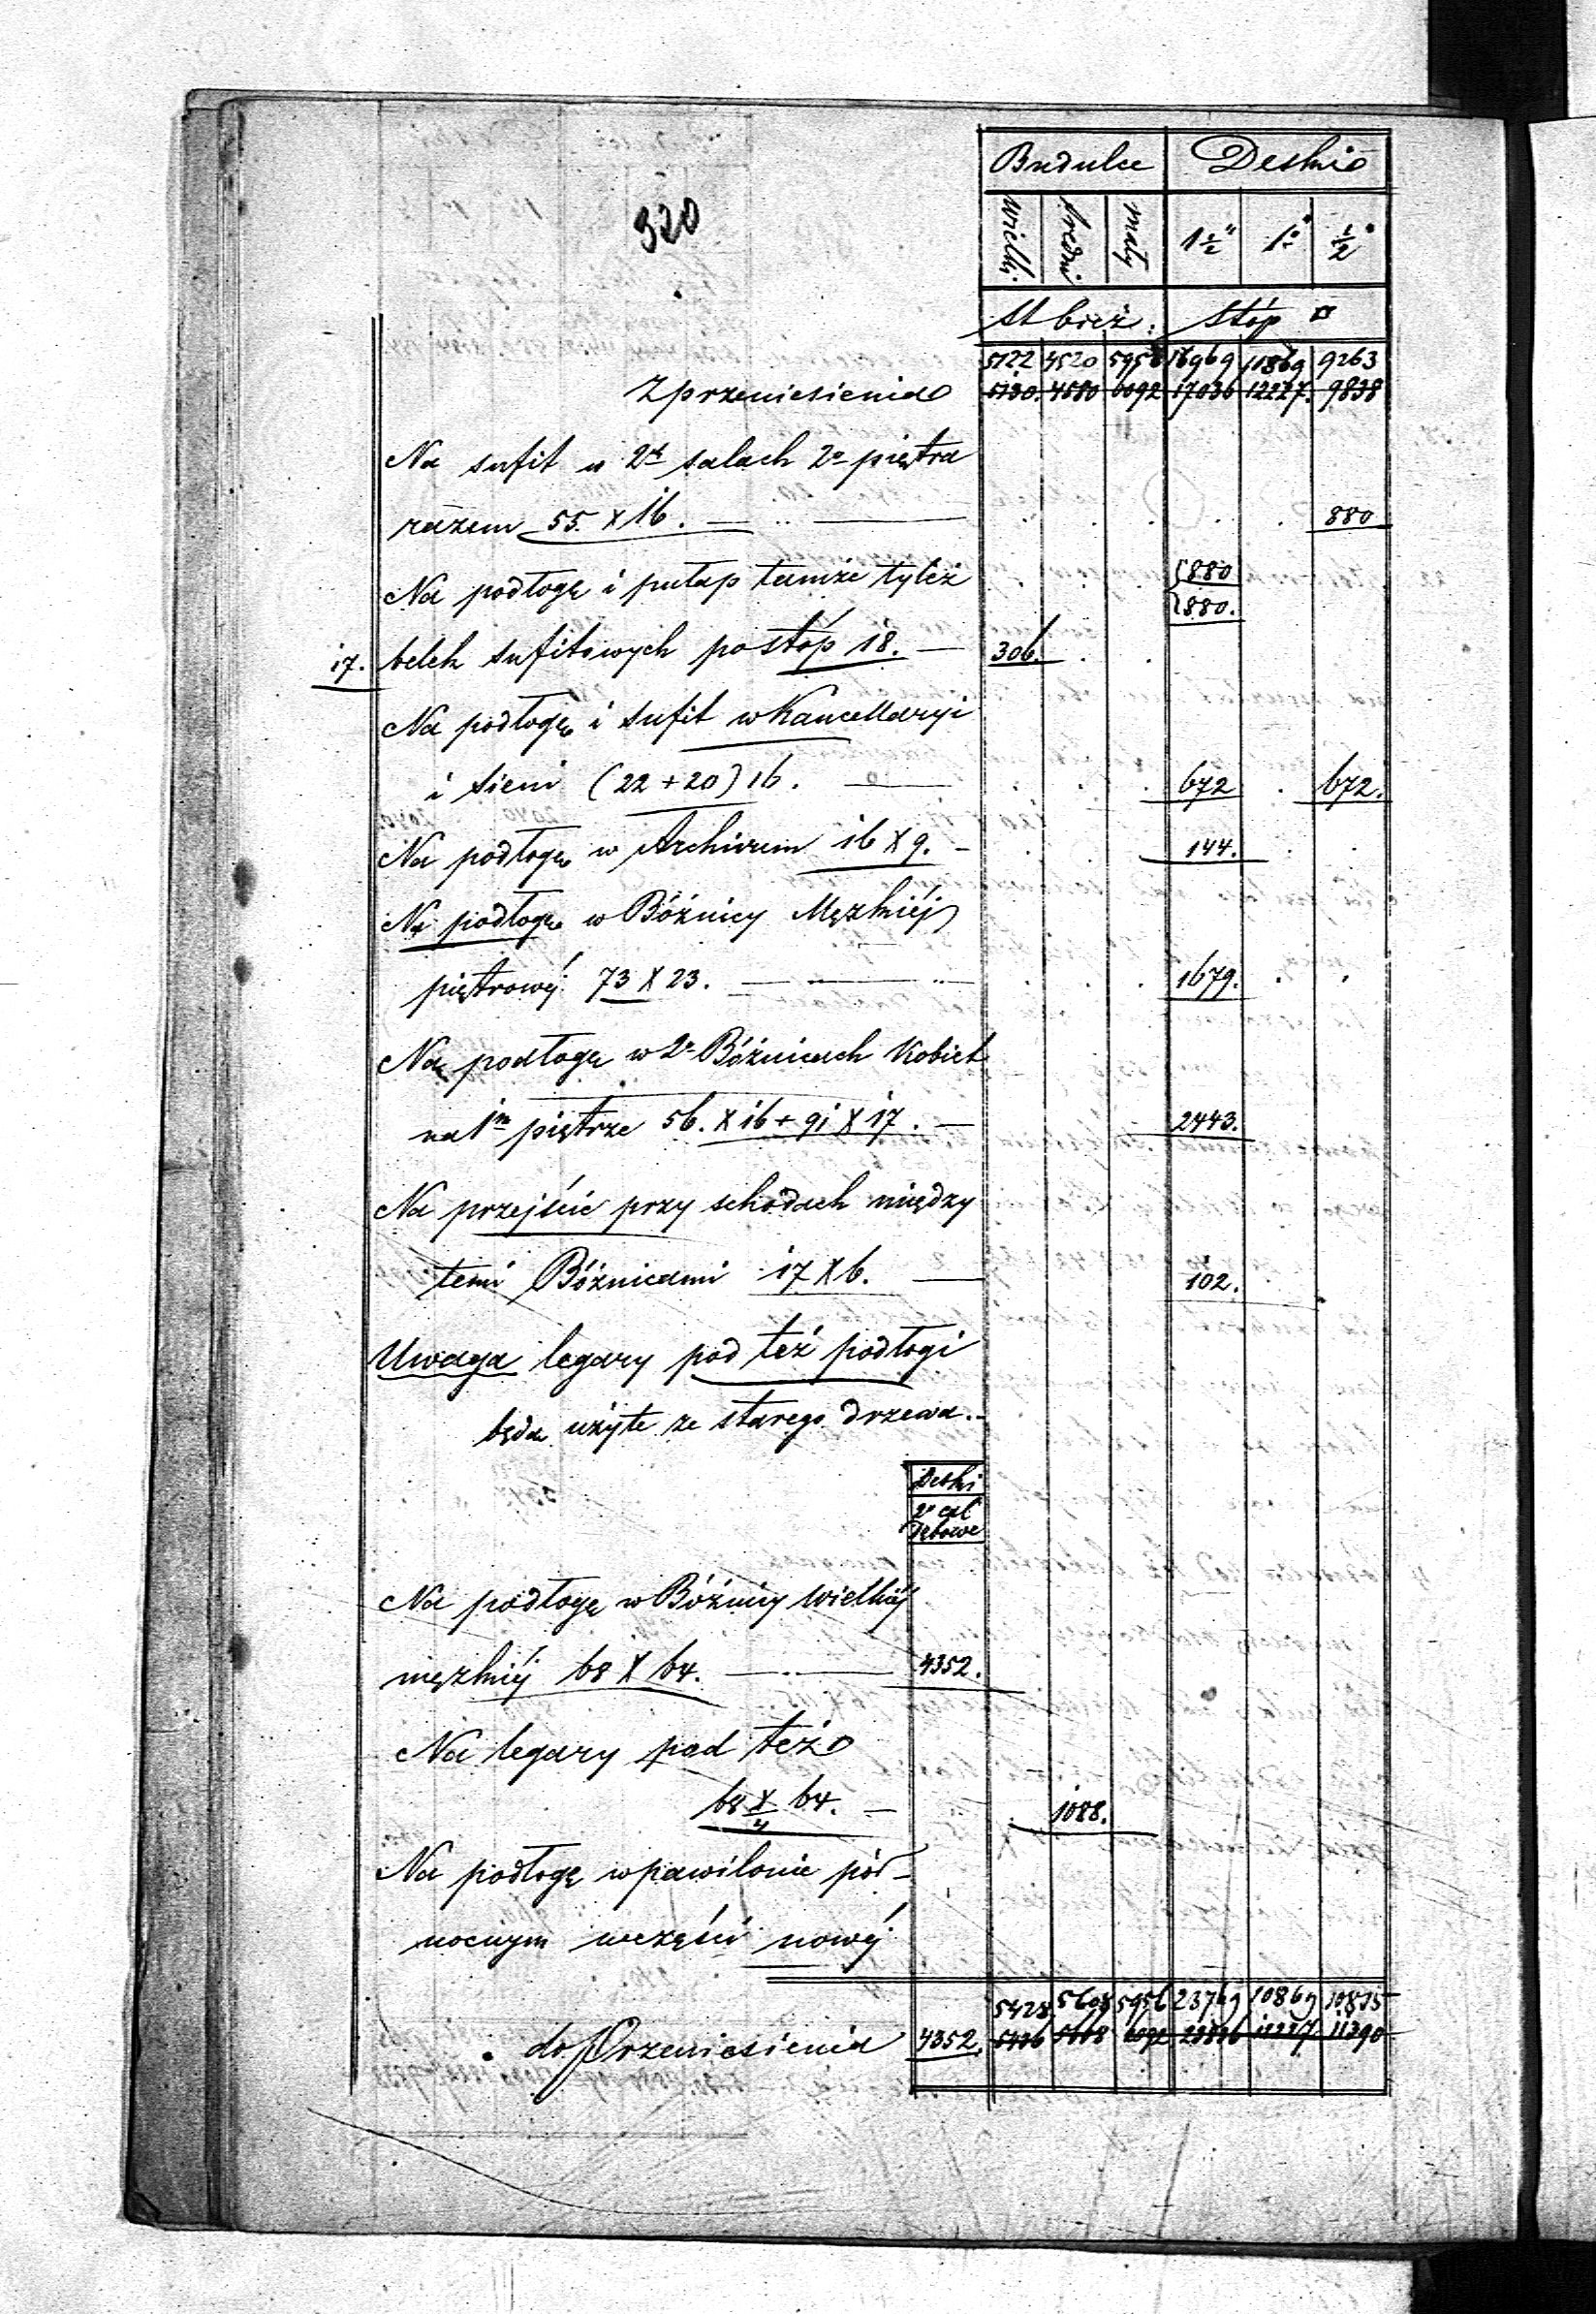 320
Budulce Deski
wielki średni mały 1½" 1" ½"
st bież. stóp □
5122 4520 5956 16969 11869 9263
Z przeniesienia 5130. 4580 6092 17036 12227. 9838
Na sufit w 2ch salach 2o piętra
razem 55 X 16. 880
Na podłogę i pułap tamże tyleż 880
880.
17. belek sufitowych po stóp 18. 306.
Na podłogę i sufit w Kancellaryi
i sieni (22 + 20) 16. 672 672.
Na podłogę w Archiwum 16 X 9. 144.
Na podłogę w Bóźnicy Męzkiéj
piętrowéj 73 X 23. 1679.
Na podłogę w 2ch Bóźnicach Kobiet
na 1m piętrze 56. X 16 + 91 X 17. 2443.
Na przejście przy schodach między
temi Bóźnicami 17 X 6. 102.
Uwaga legary pod też podłogi
będą użyte ze starego drzewa.
Deski
2" cal
Dębowe
Na podłogę w Bóźnicy Wielkiéj
męzkiéj 68 X 64. 4352.
Na legary pod też
68 X 64. 1088.
4
Na podłogę w pawilonie pół-
nocnym w części nowéj
5428 5608 5956 23769 10869 10815
do Przeniesienia 4352. 5436 5668 6092 23836 12227 11390